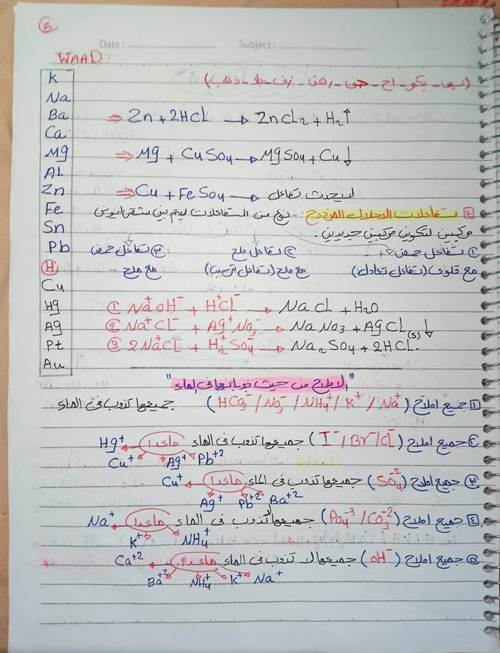 5
Date :
Subject :
WAAD
K
Na
Ba
Ca
Mg
AL
Zn
Fe
Sn
Pb
H
Cu
Hg
Ag
Pt
Au
⇒ Zn + 2HCl → ZnCL2 + H2↑
⇒ Mg + CuSO4 → MgSO4 + Cu↓
⇒ Cu + FeSO4 → لايحدث تفاعل
4 تفاعلات الاحلال المزدوج: نوع من التفاعلات ليتم بين شقى ايونين
مركبين لتكوين مركبين جديدين.
1 تفاعل حمض 2 تفاعل ملح 3 تفاعل حمض
مع قلوى (تفاعل تعادل) مع ملح (تفاعل ترسيب) مع ملح
1 Na+OH- + H+Cl- → NaCl + H2O
2 Na+Cl- + Ag+NO3- → NaNO3 + AgCL(s)↓
3 2NaCl + H2+SO4- → Na2SO4 + 2HCl.
"الاملاح من حيث ذوبانها فى الماء"
1 جميع املاح (HCO3- / NO3- / NH4+ / K+ / Na+) جميعها تذوب فى الماء
2 جميع املاح (I- / Br- / Cl-) جميعها تذوب فى الماء ماعدا Hg+
Cu+ Ag+ Pb+2
3 جميع املاح (SO4-2) جميعها تذوب فى الماء ماعدا Cu+
Ag+ Pb+2 Ba+2
4 جميع املاح (PO4-3 / CO3-2) جميعها لاتذوب فى الماء ماعدا Na+
K+ NH4+
5 جميع املاح (OH-) جميعها لا تذوب فى الماء ماعدا Ca+2
Ba+2 NH4+ K+ Na+